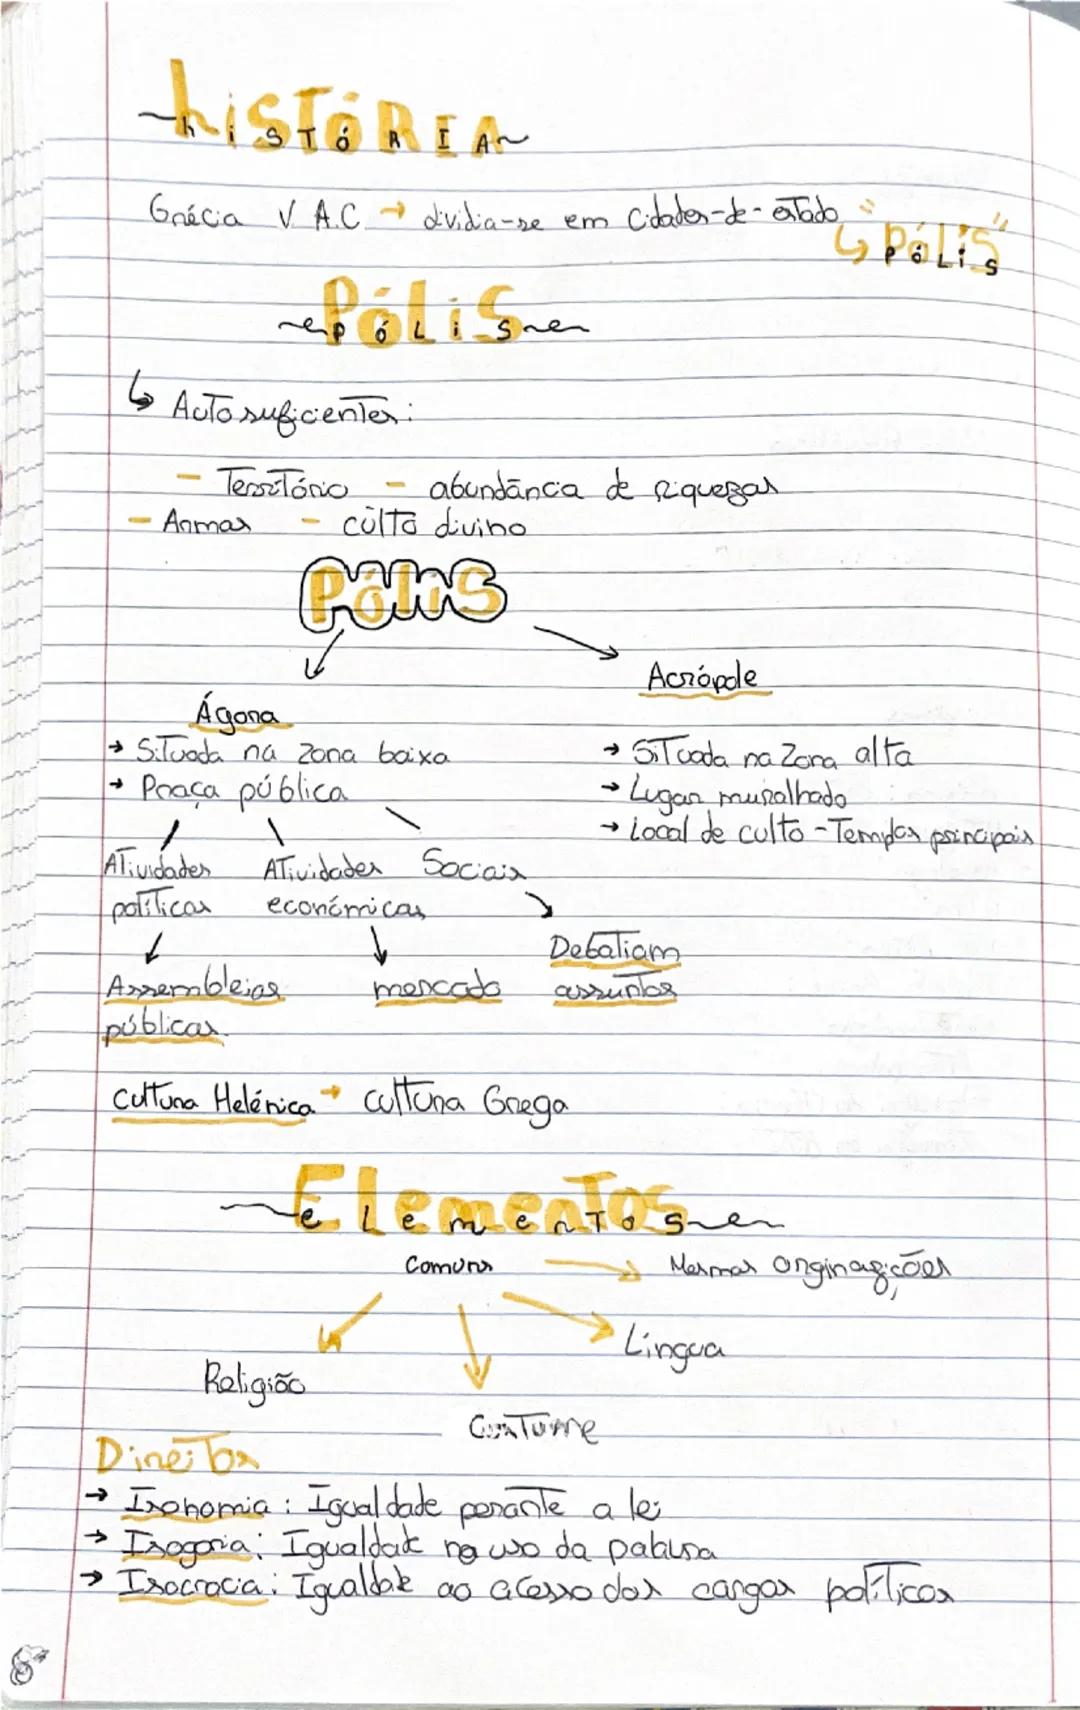 hiSTÓRIA
h i S T ó R I A
Grécia V A.C → dividia-se em cidades-de-estado
↳ "PóLiS"
P ó L i S
PóLiS
P ó L i S
↳ Autosuficientes:
- Território - abundância de riquezas
- Armas - culto divino
PóLiS
Ágora
Acrópole
→ Situada na zona baixa
→ Situada na Zona alta
→ Praça pública
→ Lugar muralhado
→ Local de culto - Templos principais
Atividades Atividades Sociais
políticas económicas
Debatiam
Assembleias mercado assuntos
públicas.
Cultura Helénica → cultura Grega
ElemenTos
e L e m e n T o s
Comuns → Mesmas orginagições
Língua
Religião
Costume
Direitos
→ Isonomia: Igualdade perante a lei
→ Isogoria: Igualdade no uso da palavra
→ Isocracia: Igualdade ao acesso dos cargos políticos